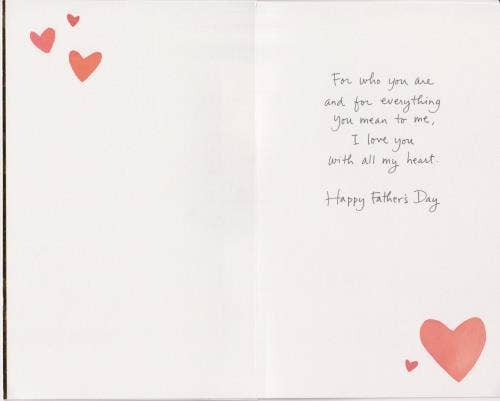 For who you are
and for everything
you mean to me,
I love you
with all my heart.
Happy Father's Day